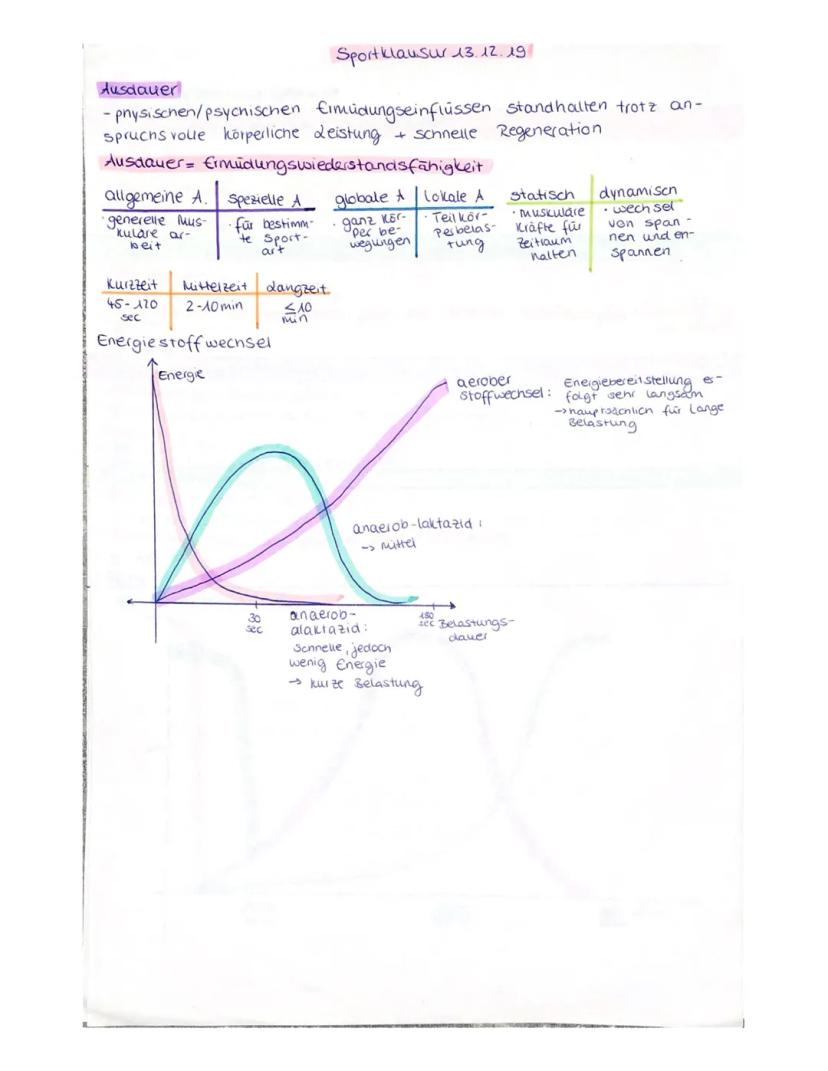 Sportklausur 13.12.19
Ausdauer
- physischen/psychischen Ermüdungseinflüssen standhalten trotz an-
spruchsvolle körperliche Leistung + schnelle Regeneration
Ausdauer = Ermüdungswiederstandsfähigkeit
allgemeine A. | spezielle A
· generelle Mus-
kuläre ar-
beit
· für bestimm-
te Sport-
art
globale A | lokale A
· ganz Kör-
per be-
wegungen
· Teilkör-
perbelas-
tung
statisch | dynamisch
· muskuläre
Kräfte für
Zeitraum
halten
· wechsel
von span-
nen und en-
spannen
Kurzzeit | Mittelzeit | Langzeit
45-120
sec
2-10min
≤10
min
Energiestoffwechsel
Energie
aerober
stoffwechsel:
Energiebereitstellung er-
folgt sehr langsam
→ hauptsächlich für Lange
Belastung
anaerob-laktazid:
→ Mittel
30
sec
180
sec
Belastungs-
dauer
anaerob-
alaktazid:
schnelle, jedoch
wenig Energie
→ kurze Belastung